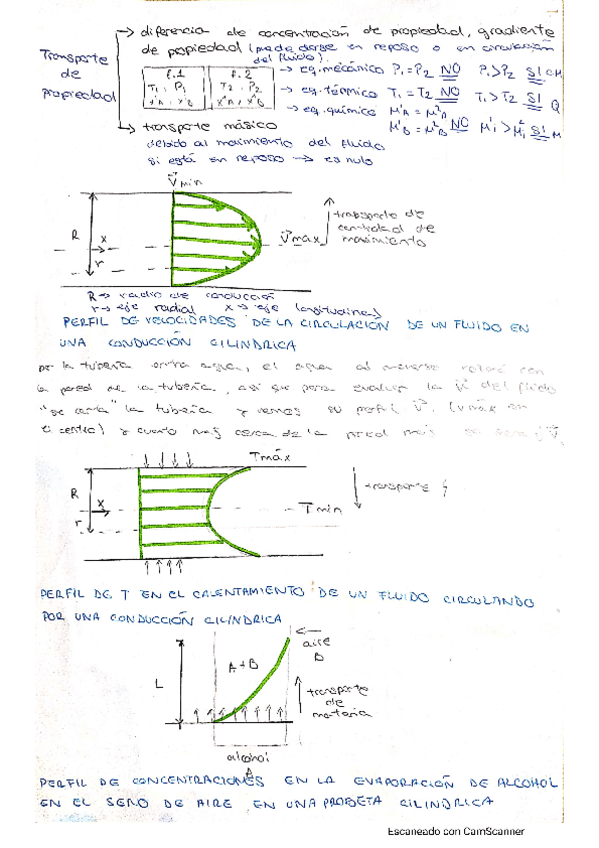 Transporte de propiedad
→ diferencia de concentración de propiedad, gradiente
de propiedad (puede darse en reposo o en circulación
del fluido).
F.1 F.2
T1, P1 T2, P2
→ eq. mecánico P1=P2 NO P1>P2 SI CM
→ eq. térmico T1=T2 NO T1>T2 SI Q
→ eq. químico
→ transporte másico
debido al movimiento del fluido
si está en reposo → es nulo
V min
R
x
r
V max
transporte de
cantidad de
movimiento
R → radio de conducción
r → eje radial x → eje longitudinal
PERFIL DE VELOCIDADES DE LA CIRCULACIÓN DE UN FLUIDO EN
UNA CONDUCCIÓN CILINDRICA
la tubería entra agua, el agua al moverse rozará con
la pared de la tubería, así que para evaluar la v del fluido
"se corta" la tubería y vemos su perfil V. (vmáx en
el centro) y cuanto más cerca de la pared
Tmáx
R
x
r
T min
transporte
PERFIL DE T EN EL CALENTAMIENTO DE UN FLUIDO CIRCULANDO
POR UNA CONDUCCIÓN CILINDRICA
L
A+B
aire
B
transporte
de
materia
alcohol
A
PERFIL DE CONCENTRACIONES EN LA EVAPORACIÓN DE ALCOHOL
EN EL SENO DE AIRE EN UNA PROBETA CILINDRICA
Escaneado con CamScanner